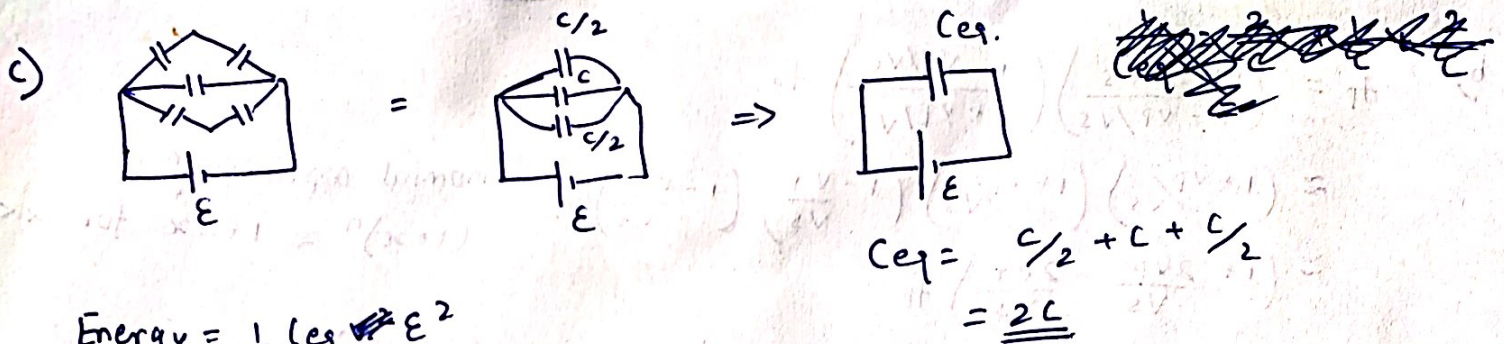 c)
C/2
C
C/2
ε
=
ε
=>
Ceq.
ε
Ceq = C/2 + C + C/2
= 2C
Energy = 1 Ceq ε²